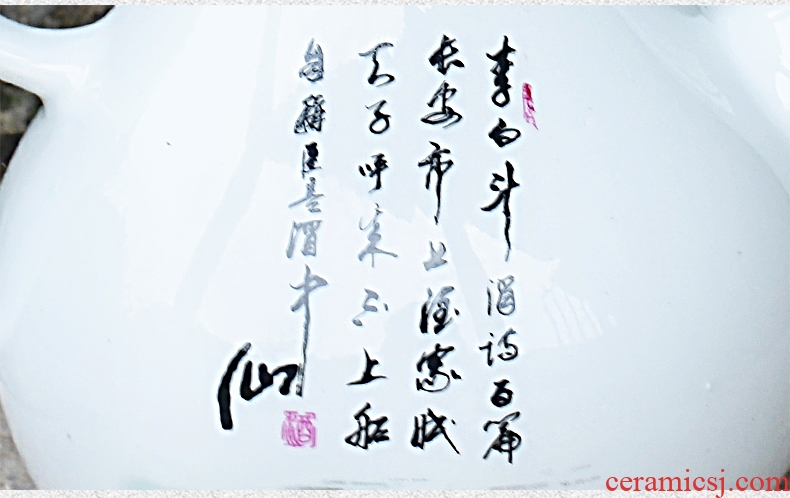 李白斗酒诗百篇
长安市上酒家眠
天子呼来不上船
自称臣是酒中
仙
ceramicsj.com